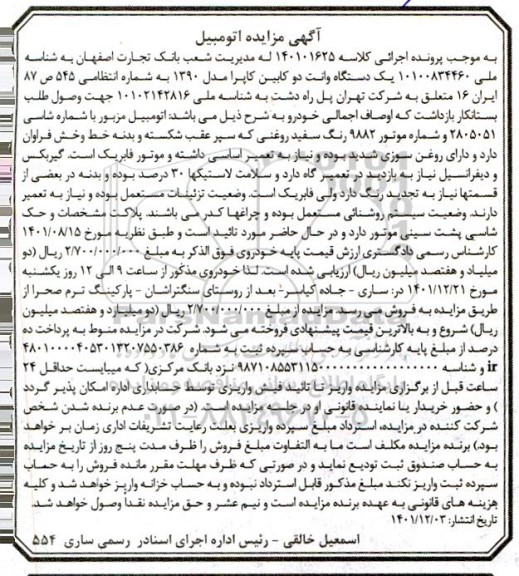 آگهی مزایده اتومبیل
به موجب پرونده اجرائی کلاسه ۱۴۰۱۰۱۶۲۵ له مدیریت شعب بانک تجارت اصفهان به شناسه
ملی ۱۰۱۰۰۸۳۴۴۶۰ یک دستگاه وانت دو کابین کاپرا مدل ۱۳۹۰ به شماره انتظامی ۵۴۵ ص ۸۷
ایران ۱۶ متعلق به شرکت تهران پل راه دشت به شناسه ملی ۱۰۱۰۲۱۴۲۸۱۶ جهت وصول طلب
بستانکار بازداشت که اوصاف اجمالی خودرو به شرح ذیل می باشد: اتومبیل مزبور با شماره شاسی
۲۸۰۵۰۵۱ و شماره موتور ۹۸۸۲ رنگ سفید روغنی که سپر عقب شکسته و بدنه خط وخش فراوان
دارد و دارای روغن سوزی شدید بوده و نیاز به تعمیر اساسی داشته و موتور فابریک است. گیربکس
و دیفرانسیل نیاز به بازدید در تعمیر گاه دارد و سلامت لاستیکها ۳۰ درصد بوده و بدنه در بعضی از
قسمتها نیاز به تجدید رنگ دارد ولی فابریک است. وضعیت تزئینات مستعمل بوده و نیاز به تعمیر
دارند. وضعیت سیستم روشنائی مستعمل بوده و چراغها کدر می باشند. پلاکت مشخصات و حک
شاسی پشت سینی موتور دارد و در حال حاضر مورد تائید است و طبق نظریه مورخ ۱۴۰۱/۰۸/۱۵
کارشناس رسمی دادگستری ارزش قیمت پایه خودروی فوق الذکر به مبلغ ۲/۷۰۰/۰۰۰/۰۰۰ ریال (دو
میلیاد و هفتصد میلیون ریال) ارزیابی شده است. لذا خودروی مذکور از ساعت ۹ الی ۱۲ روز یکشنبه
مورخ ۱۴۰۱/۱۲/۲۱ در: ساری - جاده کیاسر- بعد از روستای سنگتراشان - پارکینگ ترم صحرا از
طریق مزایده به فروش می رسد. مزایده از مبلغ ۲/۷۰۰/۰۰۰/۰۰۰ ریال (دو میلیارد و هفتصد میلیون
ریال) شروع و به بالاترین قیمت پیشنهادی فروخته می شود. شرکت در مزایده منوط به پرداخت ده
درصد از مبلغ پایه کارشناسی به حساب سپرده ثبت به شماره
ir و شناسه نزد بانک مرکزی( که میبایست حداقل ۲۴
ساعت قبل از برگزاری مزایده واریز با تائید فیش واریزی توسط حسابداری اداره امکان پذیر گردد
) و حضور خریدار یا نماینده قانونی او در جلسه مزایده است (در صورت عدم برنده شدن شخص
شرکت کننده در مزایده، استرداد مبلغ سپرده واریزی بعلت رعایت تشریفات اداری زمان بر خواهد
بود.) برنده مزایده مکلف است ما به التفاوت مبلغ فروش را ظرف مدت پنج روز از تاریخ مزایده
به حساب صندوق ثبت تودیع نماید و در صورتی که ظرف مهلت مقرر مانده فروش را به حساب
سپرده ثبت واریز نکند مبلغ مذکور قابل استرداد نبوده و به حساب خزانه واریز خواهد شد و کلیه
هزینه های قانونی به عهده برنده مزایده است و نیم عشر و حق مزایده نقدا وصول خواهد شد.
تاریخ انتشار: ۱۴۰۱/۱۲/۰۳
اسمعیل خالقی - رئیس اداره اجرای اسناد رسمی ساری ۵۵۴